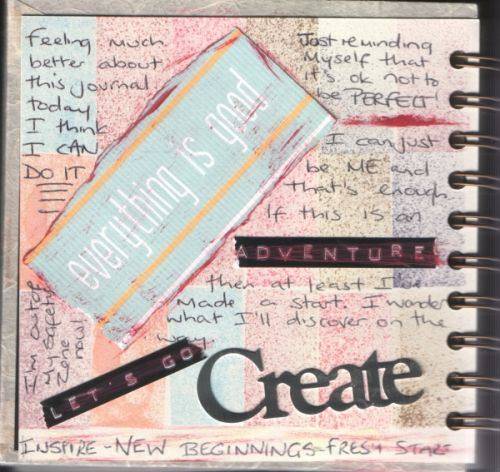 Feeling much
better about
this journal
today
I think
I CAN
DO IT
!!!!
everything is good
Just reminding
Myself that
it's ok not to
be PERFECT!
I can just
be ME and
that's enough
If this is an
ADVENTURE
then at least I've
Made a start. I wonder
what I'll discover on the
way.
I'm out of
My Safety
Zone
now!
LET'S GO
Create
INSPIRE - NEW BEGINNINGS - FRESH START